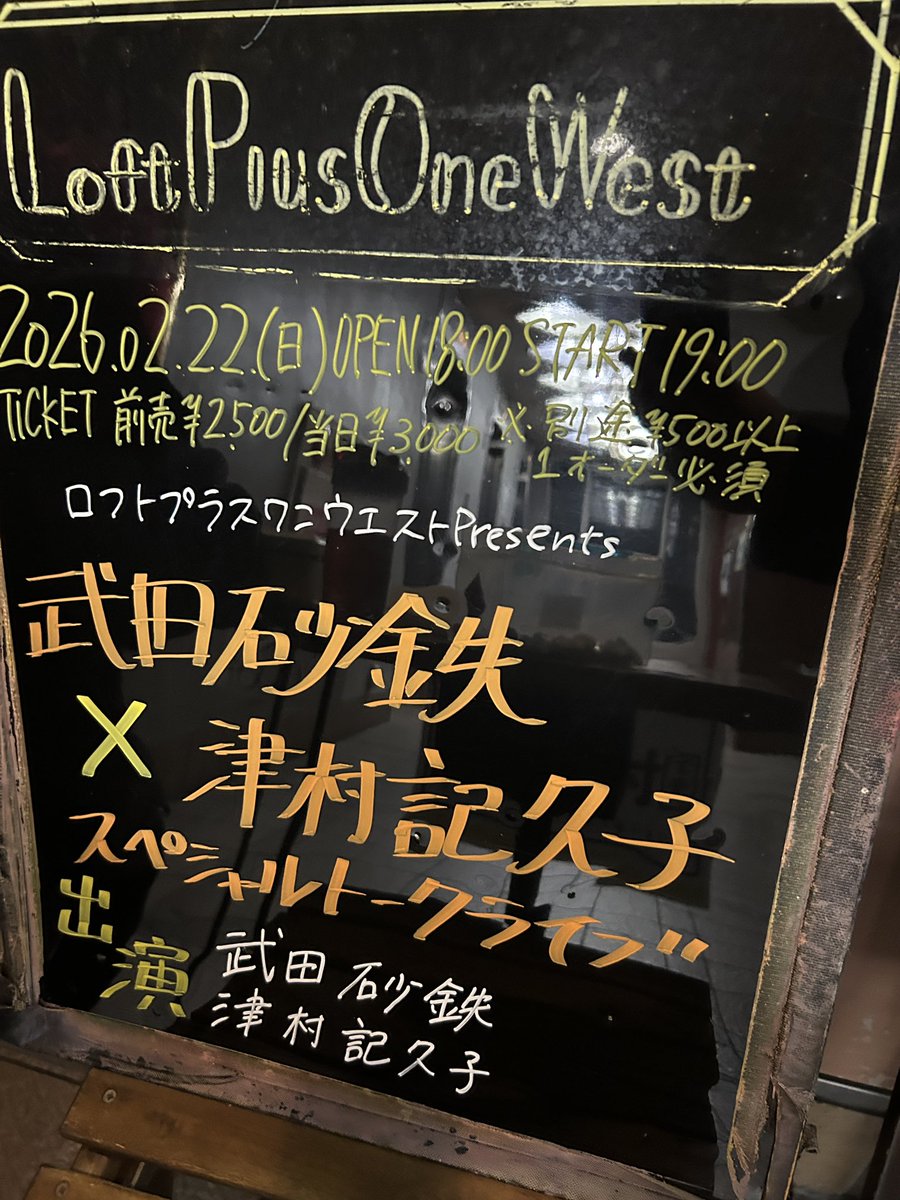 Loft PlusOne West
2026.02.22(日) OPEN 18:00 START 19:00
TICKET 前売¥2,500/当日¥3,000 ※別途¥500以上
1オーダー必須
ロフトプラスワンウエストPresents
武田砂鉄
×
津村記久子
スペシャルトークライブ
出演 武田砂鉄
津村記久子